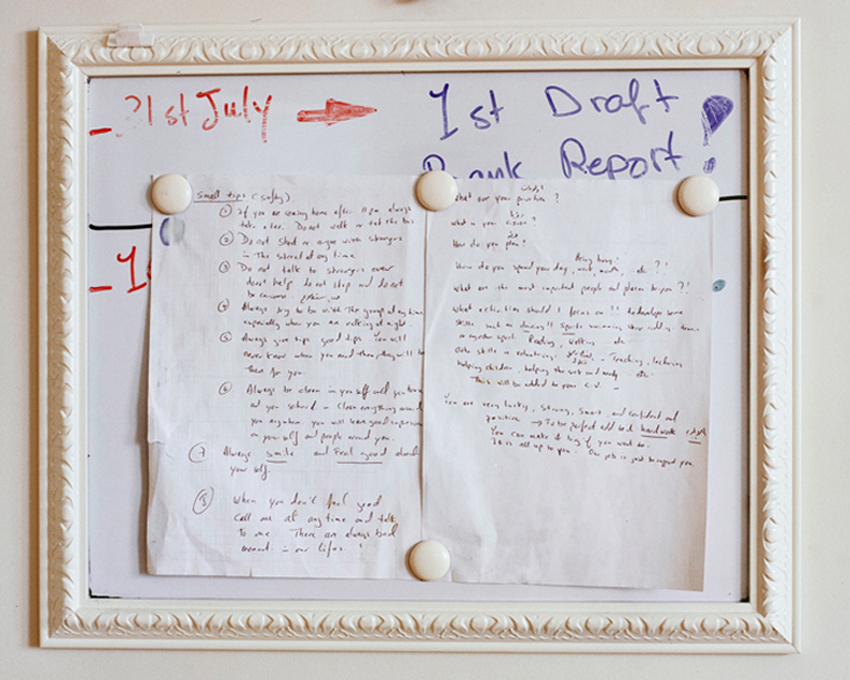 31st July
1st Draft
Report!
Small tips (Safty)
① if you are coming home after 11pm always
take a taxi. Do not walk or tak the bus
② Do not shot or argue with strangers
in the street at any time
③ Do not talk to strangers ever
don't help do not stop and do not
be
④ Always try to be with the group at any time
especially when you are walking at night.
⑤ Always give tips good tips. You will
never know when you need them they will be
there for you.
⑥ Always be clean in your self and your
and your school - clean everything around
you anywhere you will leave good
in your self and people around you.
⑦ Always smile and feel good about
your self.
⑧ When you don't feel good
Call me at any time and talk
To me There are always bad
moment in our lifes !
what are your ?
what is your ?
How do you plan?
Being busy!
How do you spend your day, week, month, etc ?!
what are the most important people and places to you ?!
what activities should I focus on !! to develope some
skills such as driving!! Sports swimming
or any other sport. Reading, walking etc
Other skills is volunteering Teaching,
helping children, helping the sick and etc
This will be added to your C.V.
You are very lucky, strong, smart, and confident and
positive → To be perfect add to it hardwork
You can make it big if you want to.
It is all up to you. Our job is just to support you.